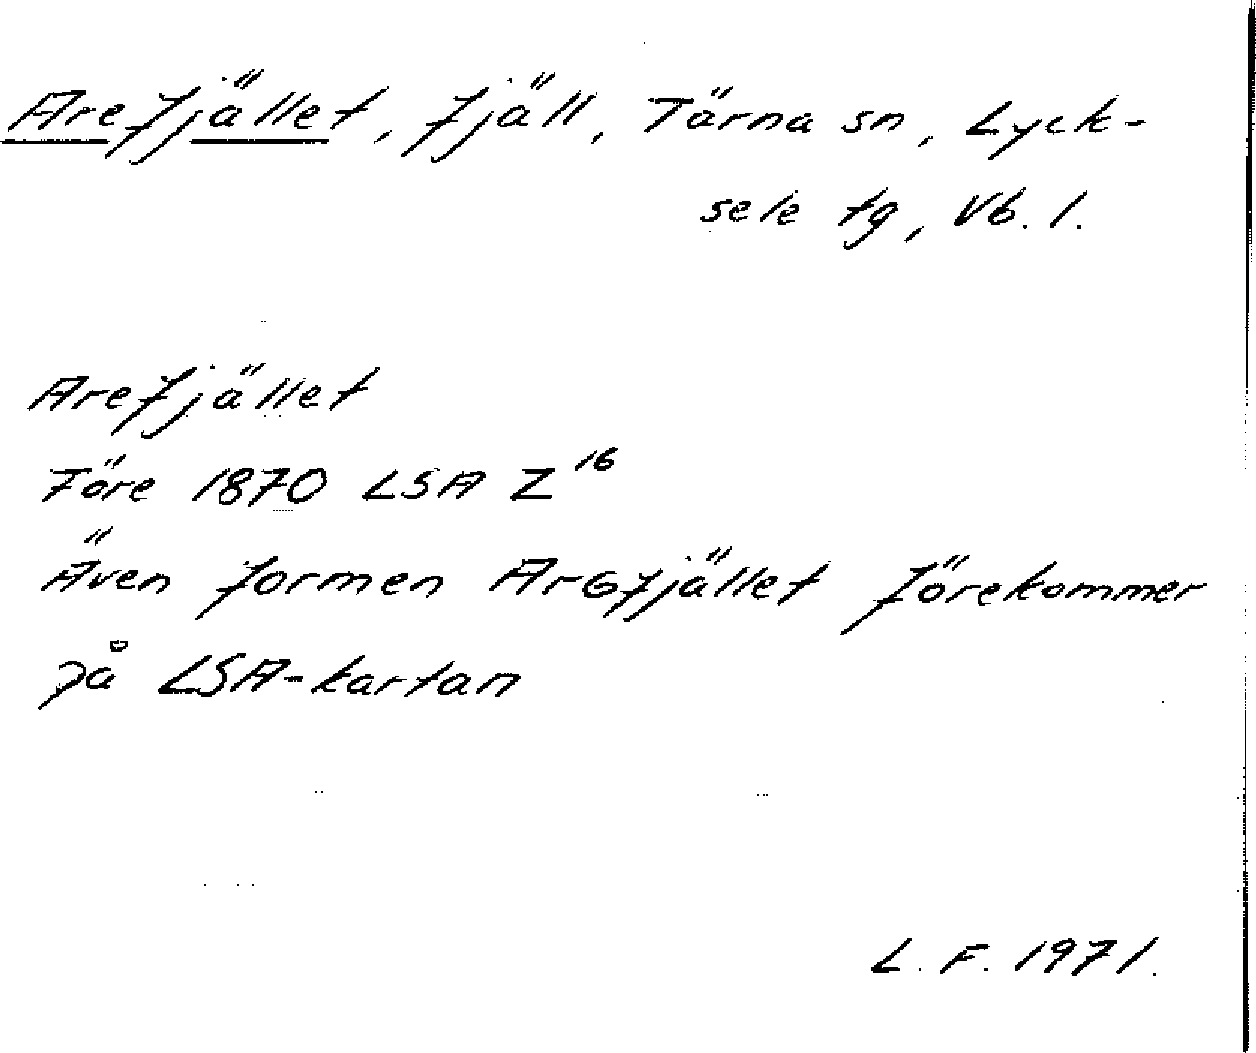 Arefjället, fjäll, Tärna sn, Lyck-
sele tg, Vb. l.
Arefjället
Före 1870 LSA Z 16
Även formen Arefjället förekommer
på LSA-kartan
L. F. 1971.